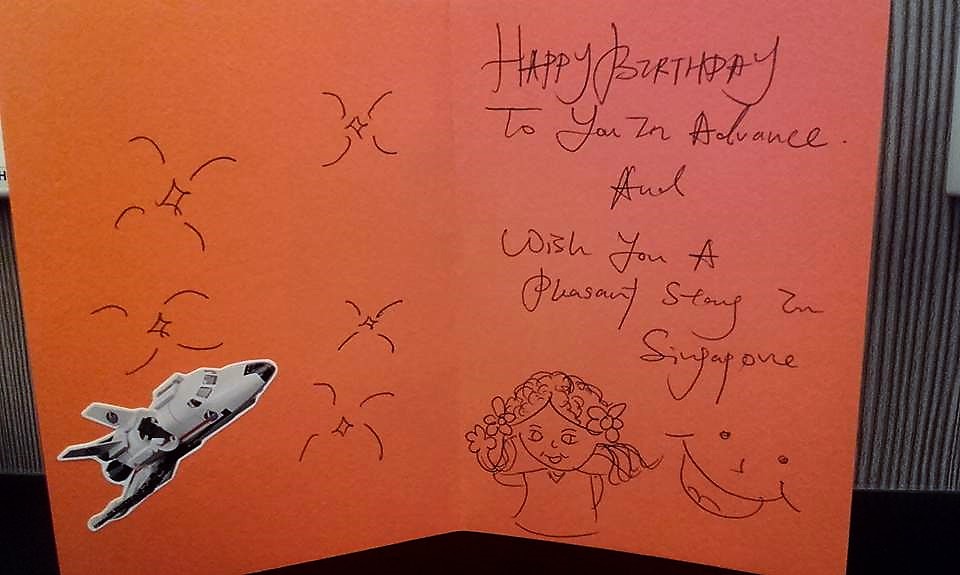 HAPPY BIRTHDAY
To You In Advance.
And
Wish You A
Pleasant Stay In
Singapore
H